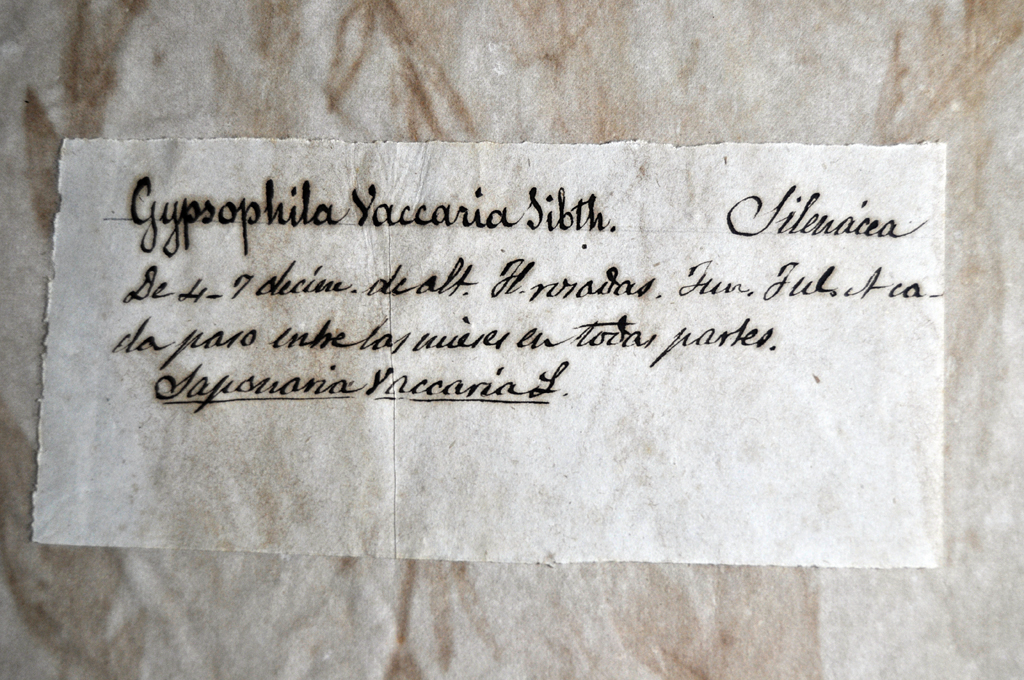 Gypsophila Vaccaria Sibth. Silenácea
De 4-7 decim. de alt. Fl. rosadas. Jun. Jul. A ca-
da paso entre las mieses en todas partes.
Saponaria Vaccaria L.